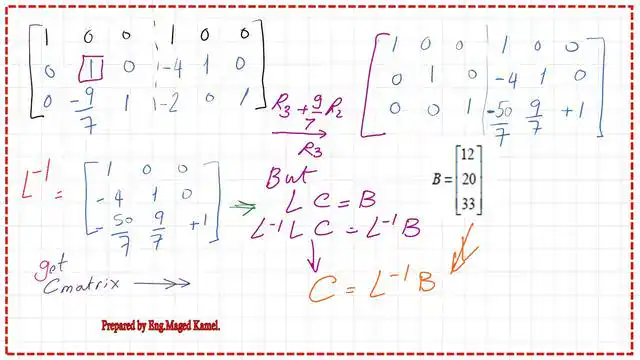 1 0 0 1 0 0
0 1 0 -4 1 0
0 -9/7 1 -2 0 1
R3 + 9/7 R2
R3
1 0 0 1 0 0
0 1 0 -4 1 0
0 0 1 -50/7 9/7 +1
L^-1 =
1 0 0
-4 1 0
-50/7 9/7 +1
But
L C = B
L^-1 L C = L^-1 B
C = L^-1 B
B = [12 20 33]
get
C matrix
Prepared by Eng.Maged Kamel.